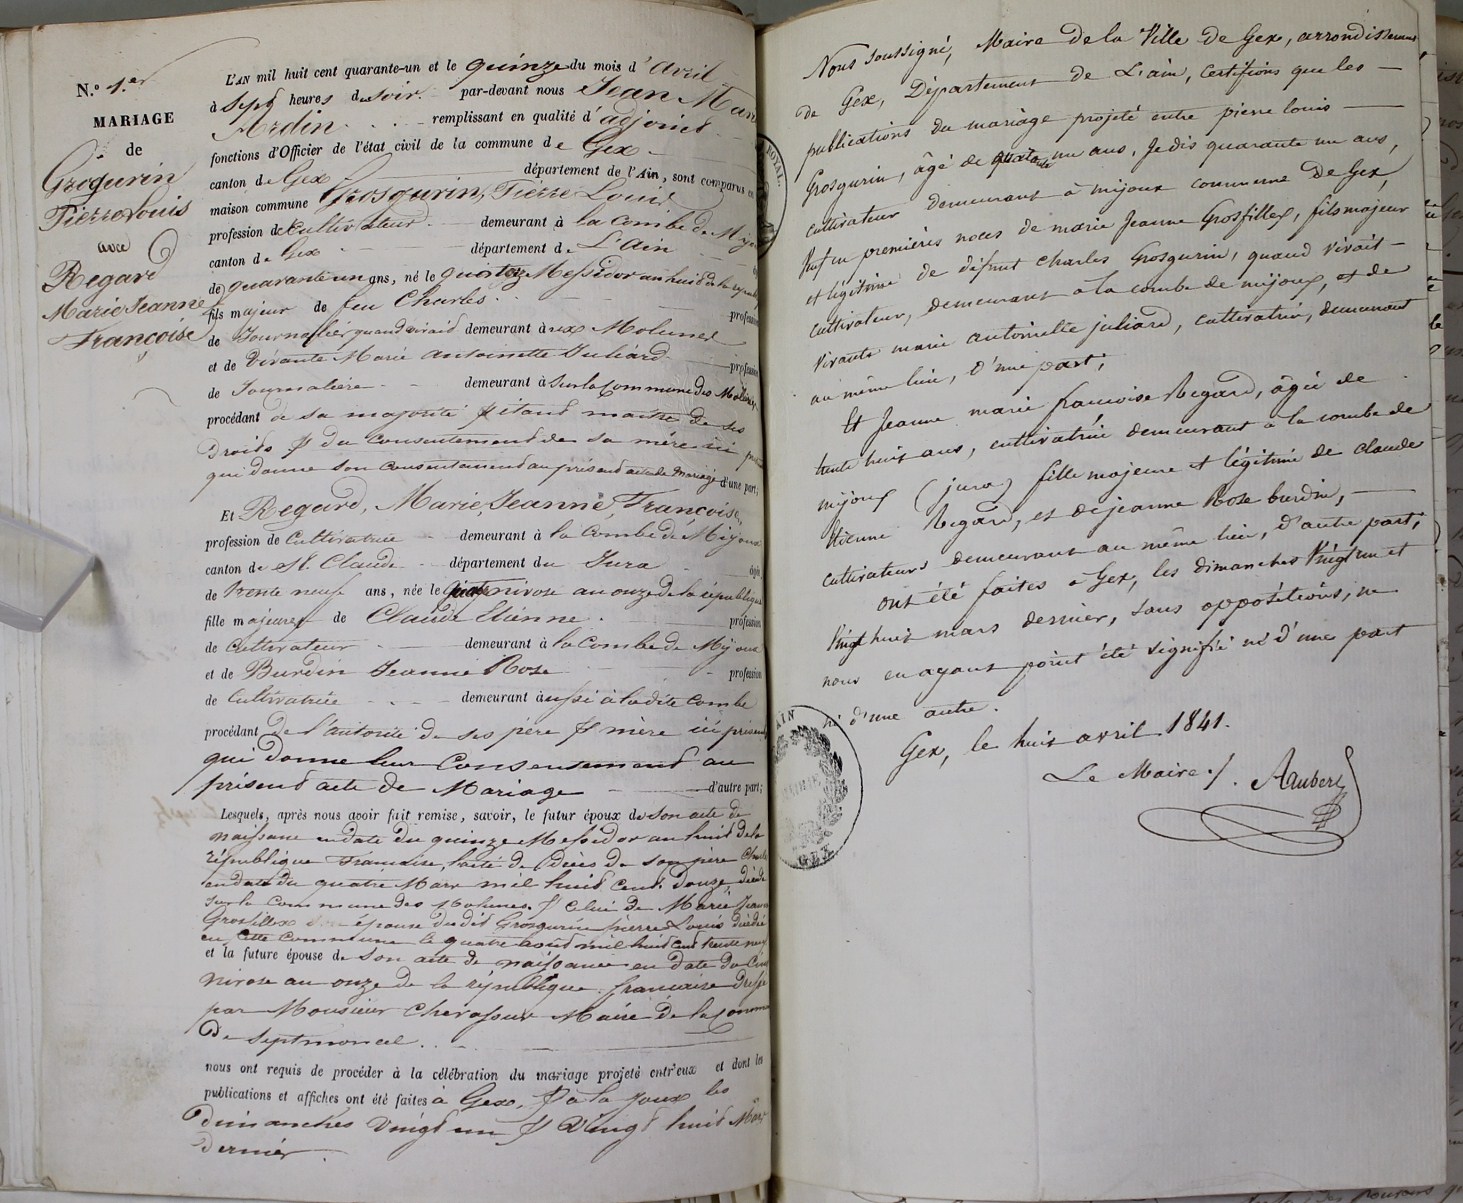 N.º 1.er
MARIAGE
de
Grosgurin
Pierre Louis
avec
Regard
Marie Jeanne
Françoise
L'AN mil huit cent quarante-un et le quinze du mois d'avril
à sept heures du soir. par-devant nous Jean Marie
Ardin remplissant en qualité d'adjoint
fonctions d'Officier de l'état civil de la commune de Gex
canton de Gex département de l'Ain, sont comparus en
maison commune Grosgurin, Pierre Louis
profession de Cultivateur demeurant à la Combe de Mijoux
canton de Gex département de L'Ain
de quarante un ans, né le quatorze Messidor an huit de la républ
fils majeur de feu Charles profession
de Journalier quand vivait demeurant à aux Molunes
et de vivante Marie Antoinette Juliard profession
de Journalière demeurant à sur la Commune des Molunes
procédant de sa majorité & étant maître de ses
Droits & du consentement de sa mère ici
qui donne son consentement au présent acte de Mariage d'une part;
Et Regard, Marie, Jeanne, Françoise,
profession de Cultivatrice demeurant à la Combe de Mijoux
canton de St. Claude département du Jura âgée
de trente neuf ans, née le nivose an onze de la république
fille majeure de Claude Etienne profession
de Cultivateur demeurant à la Combe de Mijoux
et de Burdin Jeanne Rose profession
de Cultivatrice demeurant aussi à la dite Combe
procédant de l'autorité de ses père & mère ici présents
qui donne leur Consentement au
présent acte de Mariage d'autre part;
Lesquels, après nous avoir fait remise, savoir, le futur époux de son acte de
naissance en date du quinze Messidor an huit de la
république Française, l'acte de Décès de son père Charles
en date du quatre Mars mil huit Cent Douze, décédé
sur la Commune des Molunes. & Celui de Marie Jeanne
Grosfillex épouse du dit Grosgurin Pierre Louis décédée
en cette Commune le quatre août mil huit cent trente neuf
et la future épouse de son acte de naissance en date du Cinq
nivose an onze de la république française
par Monsieur Chevassux Maire de la Commune
de Septmoncel.
nous ont requis de procéder à la célébration du mariage projeté entr'eux et dont les
publications et affiches ont été faites à Gex, & à la Joux les
dimanches vingt un & Vingt huit Mars
dernier.
Nous soussigné, Maire de la Ville de Gex, arrondissement
de Gex, Département de L'ain, Certifions que les
publications du mariage projeté entre pierre louis
Grosgurin, âgé de quarante un ans, je dis quarante un ans,
cultivateur demeurant à mijoux commune de Gex,
Veuf en premières noces de marie Jeanne Grosfillex, fils majeur
et légitime de défunt Charles Grosgurin, quand vivait
cultivateur, demeurant à la combe de mijoux, et de
vivante marie antoinette juliard, cultivatrice, demeurant
au même lieu, d'une part;
Et Jeanne marie françoise Regard, âgée de
trente huit ans, cultivatrice demeurant à la combe de
mijoux (jura) fille majeure et légitime de claude
Etienne Regard, et de jeanne Rose burdin,
cultivateurs demeurant au même lieu, d'autre part;
ont été faites à Gex, les dimanches Vingt un et
Vingt huit mars dernier, sans oppositions, ne
nous en ayant point été signifié ni d'une part
ni d'une autre.
Gex, le huit avril 1841.
Le Maire /. Aubert
AIN
MAIRIE
GEX
ROYAL